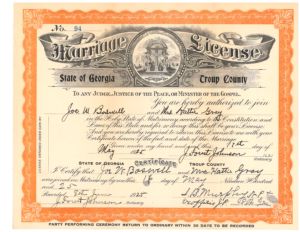 No. 94
Marriage License
State of Georgia Troup County
TO ANY JUDGE, JUSTICE OF THE PEACE, OR MINISTER OF THE GOSPEL.
You are hereby authorized to join
Joe W Boswell and Miss Hattie Gray
in the Holy State of Matrimony according to the Constitution and
Laws of this State and for so doing this shall be your License.
And you are hereby required to return this License to me with your
Certificate hereon of the fact and date of the Marriage.
STATE OF GEORGIA Certificate TROUP COUNTY
I Certify that Joe W. Boswell and Miss Hattie Gray
were joined in Matrimony this day of May Nineteen Hundred
and 25
PARTY PERFORMING CEREMONY RETURN TO ORDINARY WITHIN 30 DAYS TO BE RECORDED